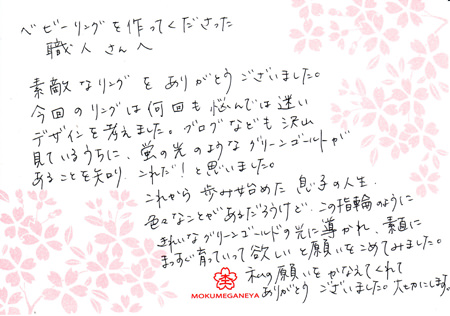 ベビーリングを作ってくださった
職人さんへ
素敵なリングをありがとうございました。
今回のリングは何回も悩んでは迷い
デザインを考えました。ブログなども沢山
見ているうちに、蛍の光のようなグリーンゴールドが
あることを知り、これだ!と思いました。
これから歩み始めた息子の人生、
色々なことがあるだろうけど、この指輪のように
きれいなグリーンゴールドの光に導かれ、素直に
まっすぐ育っていって欲しいと願いをこめてみました。
私の願いをかなえてくれて
ありがとうございました。大切にします。
MOKUMEGANEYA